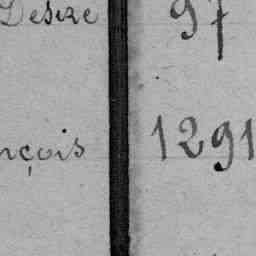 Désiré 97
nçois 1291